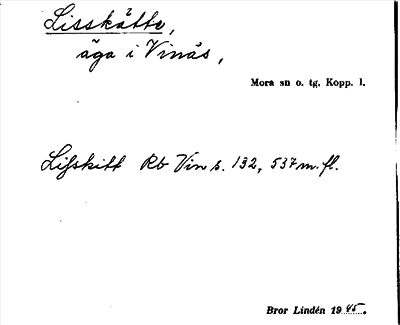 Lisskätte,
äga i Vinäs,
Mora sn o. tg, Kopp. l.
Lisskitt Rb Vin s. 132, 537 m. fl.
Bror Lindén 1945.